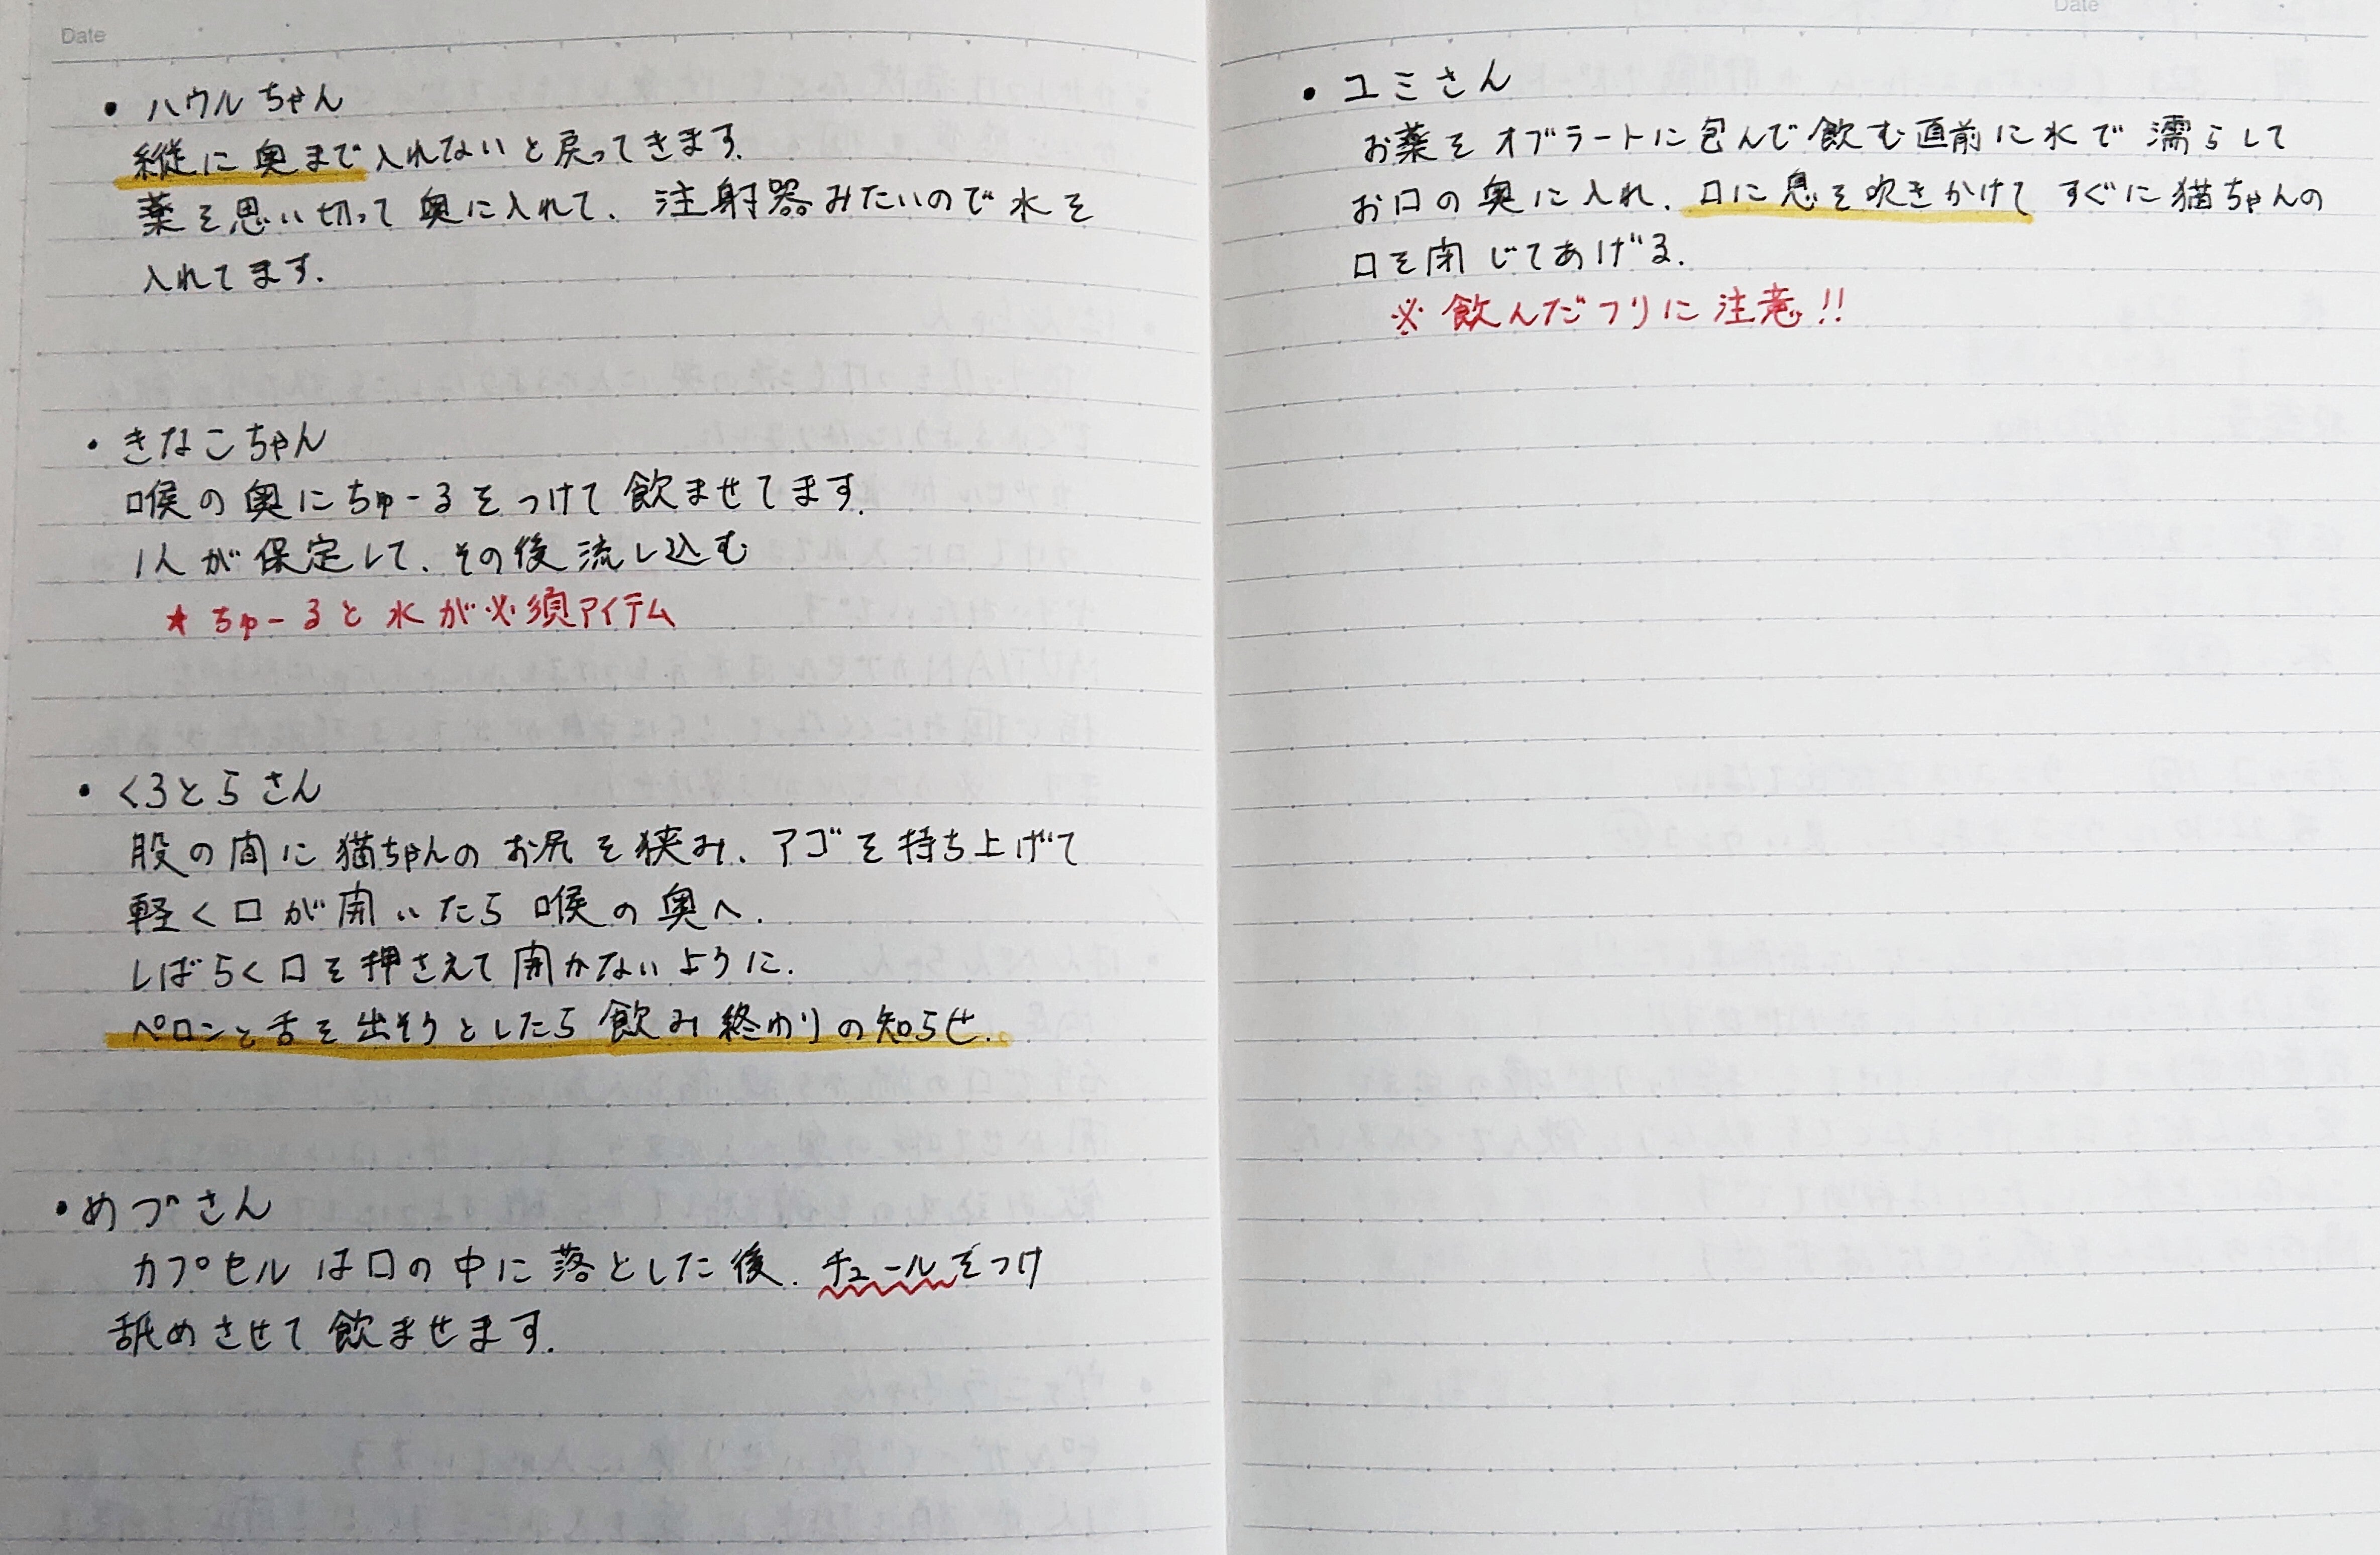 Date
• ハウルちゃん
縦に奥まで入れないと戻ってきます.
薬を思い切って奥に入れて、注射器みたいので水を
入れてます.
• きなこちゃん
喉の奥にちゅーるをつけて飲ませてます.
1人が保定して、その後流し込む
★ちゅーると水が必須アイテム
• くろとらさん
股の間に猫ちゃんのお尻を挟み、アゴを持ち上げて
軽く口が開いたら喉の奥へ.
しばらく口を押さえて開かないように.
ペロンと舌を出そうとしたら飲み終わりの知らせ.
• めづさん
カプセルは口の中に落とした後、チュールをつけ
舐めさせて飲ませます.
Date
• ユミさん
お薬をオブラートに包んで飲む直前に水で濡らして
お口の奥に入れ、口に息を吹きかけてすぐに猫ちゃんの
口を閉じてあげる.
※飲んだフリに注意!!